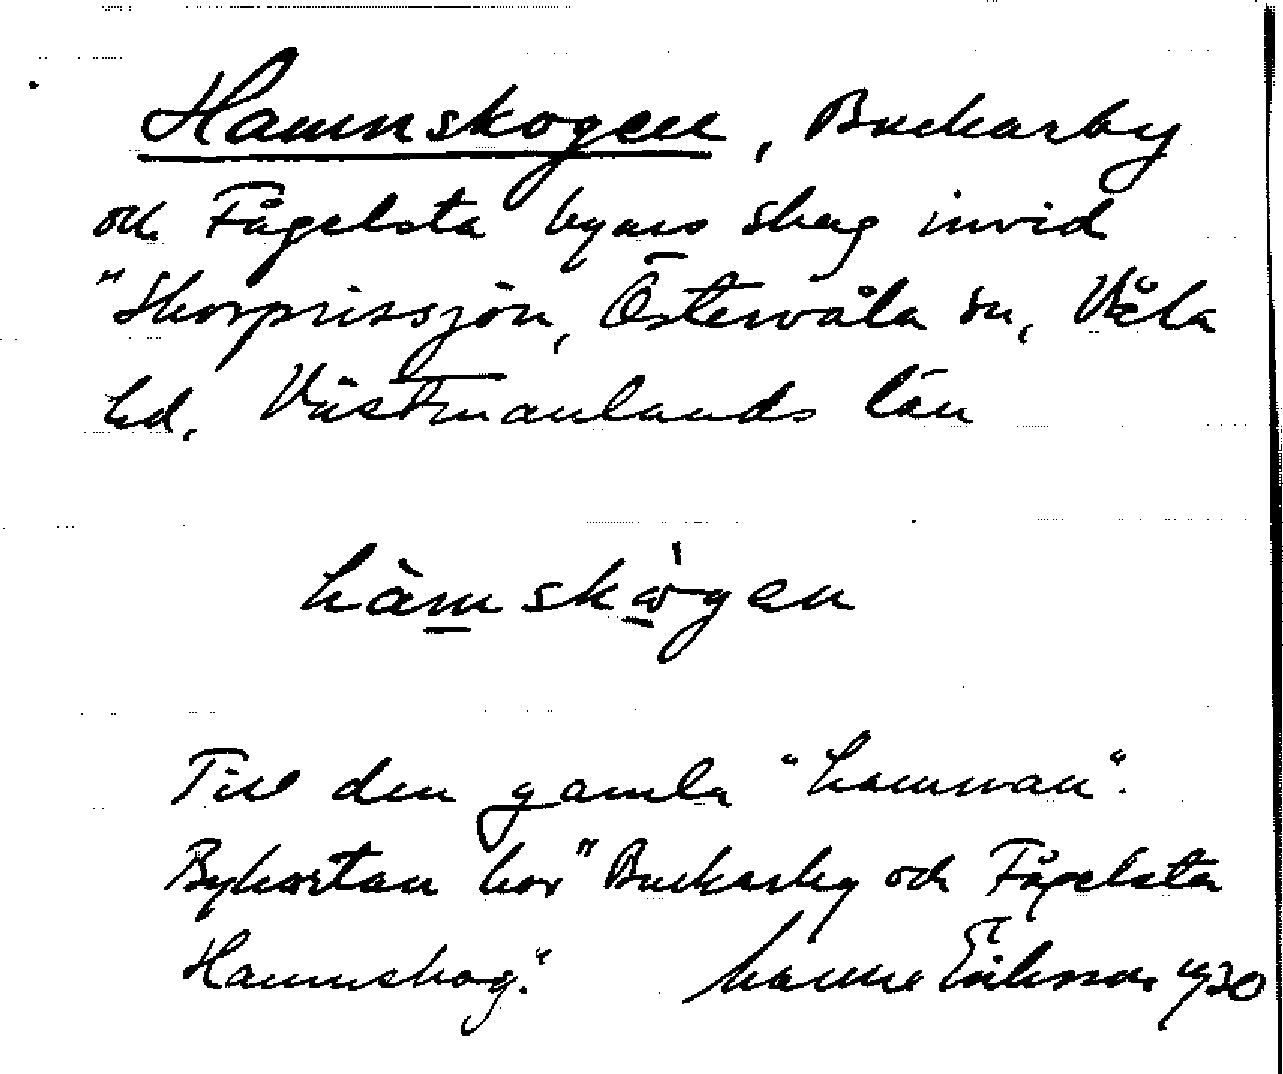 Hamnskogen, Buckarby
och Fågelsta byars skog invid
"Skorprissjön, Östervåla sn, Våla
hd. Västmanlands län
hàmskògen
Till den gamla "hamnan".
Bykartan har "Buckarby och Fågelsta
Hamnskog". Manne Eriksson 1930